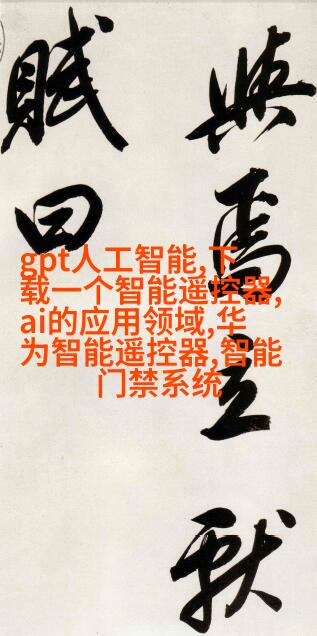 與焉立献
賦曰
gpt人工智能,下
载一个智能遥控器,
ai的应用领域,华
为智能遥控器,智能
门禁系统